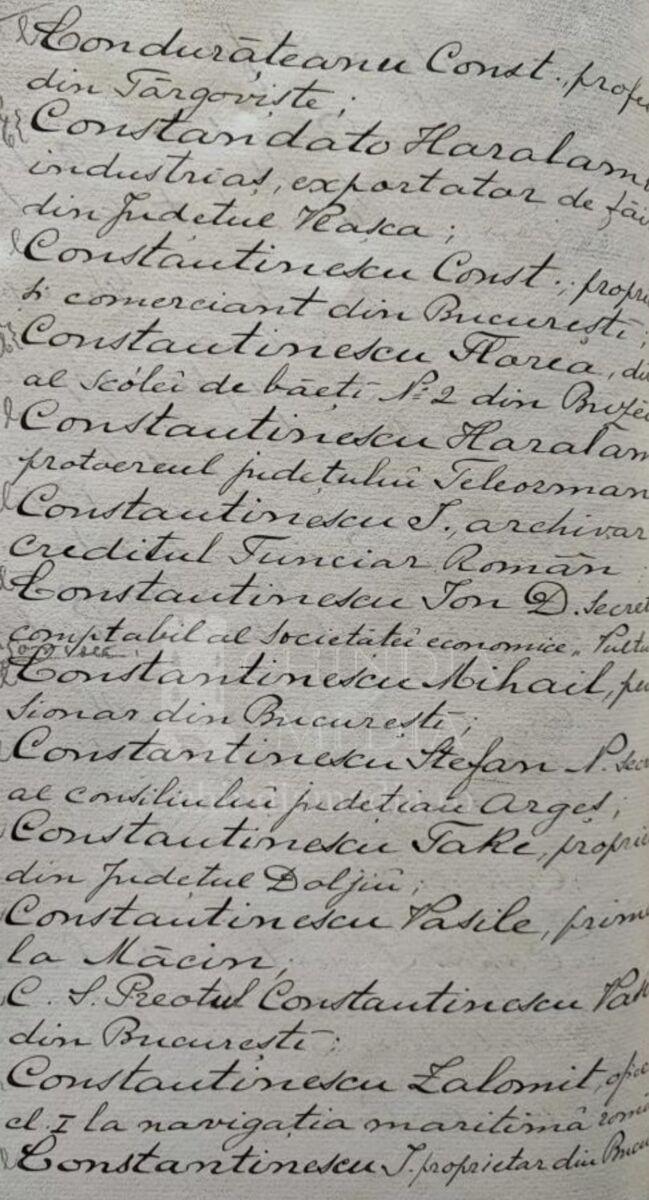 Condurățeanu Const., profe
din Târgoviște;
Constandato Haralam
industriaș, exportator de făi
din Județul Vlașca;
Constantinescu Const., propri
și comerciant din București;
Constantinescu Florea, di
al scólei de băeți No 2 din Buzĕ
Constantinescu Haralam
protoereul județuluĭ Teleorman
Constantinescu I., archivar
creditul Funciar Român
Constantinescu Ion D. secret
comptabil al societateĭ economice „Vultu
Constantinescu Mihail, pen
sionar din București;
Constantinescu Stefan N. secr
al consiliuluĭ județian Argeș;
Constantinescu Take, proprie
din Județul Doljiŭ;
Constantinescu Vasile, prima
la Măcin;
C. S. Preotul Constantinescu Vas
din București;
Constantinescu Zalomit, ofic
cl. I la navigația maritimă româ
Constantinescu I. proprietar din Bucu